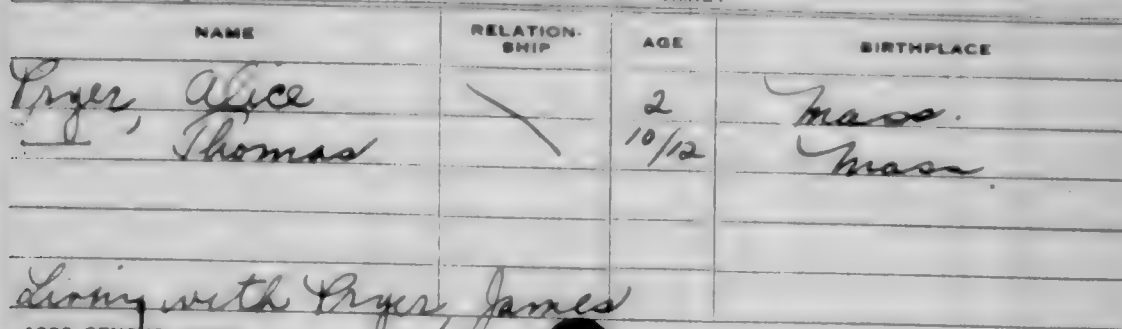 NAME RELATION-SHIP AGE BIRTHPLACE
Pryer, Alice 2 Mass.
— Thomas 10/12 Mass.
Living with Pryer, James